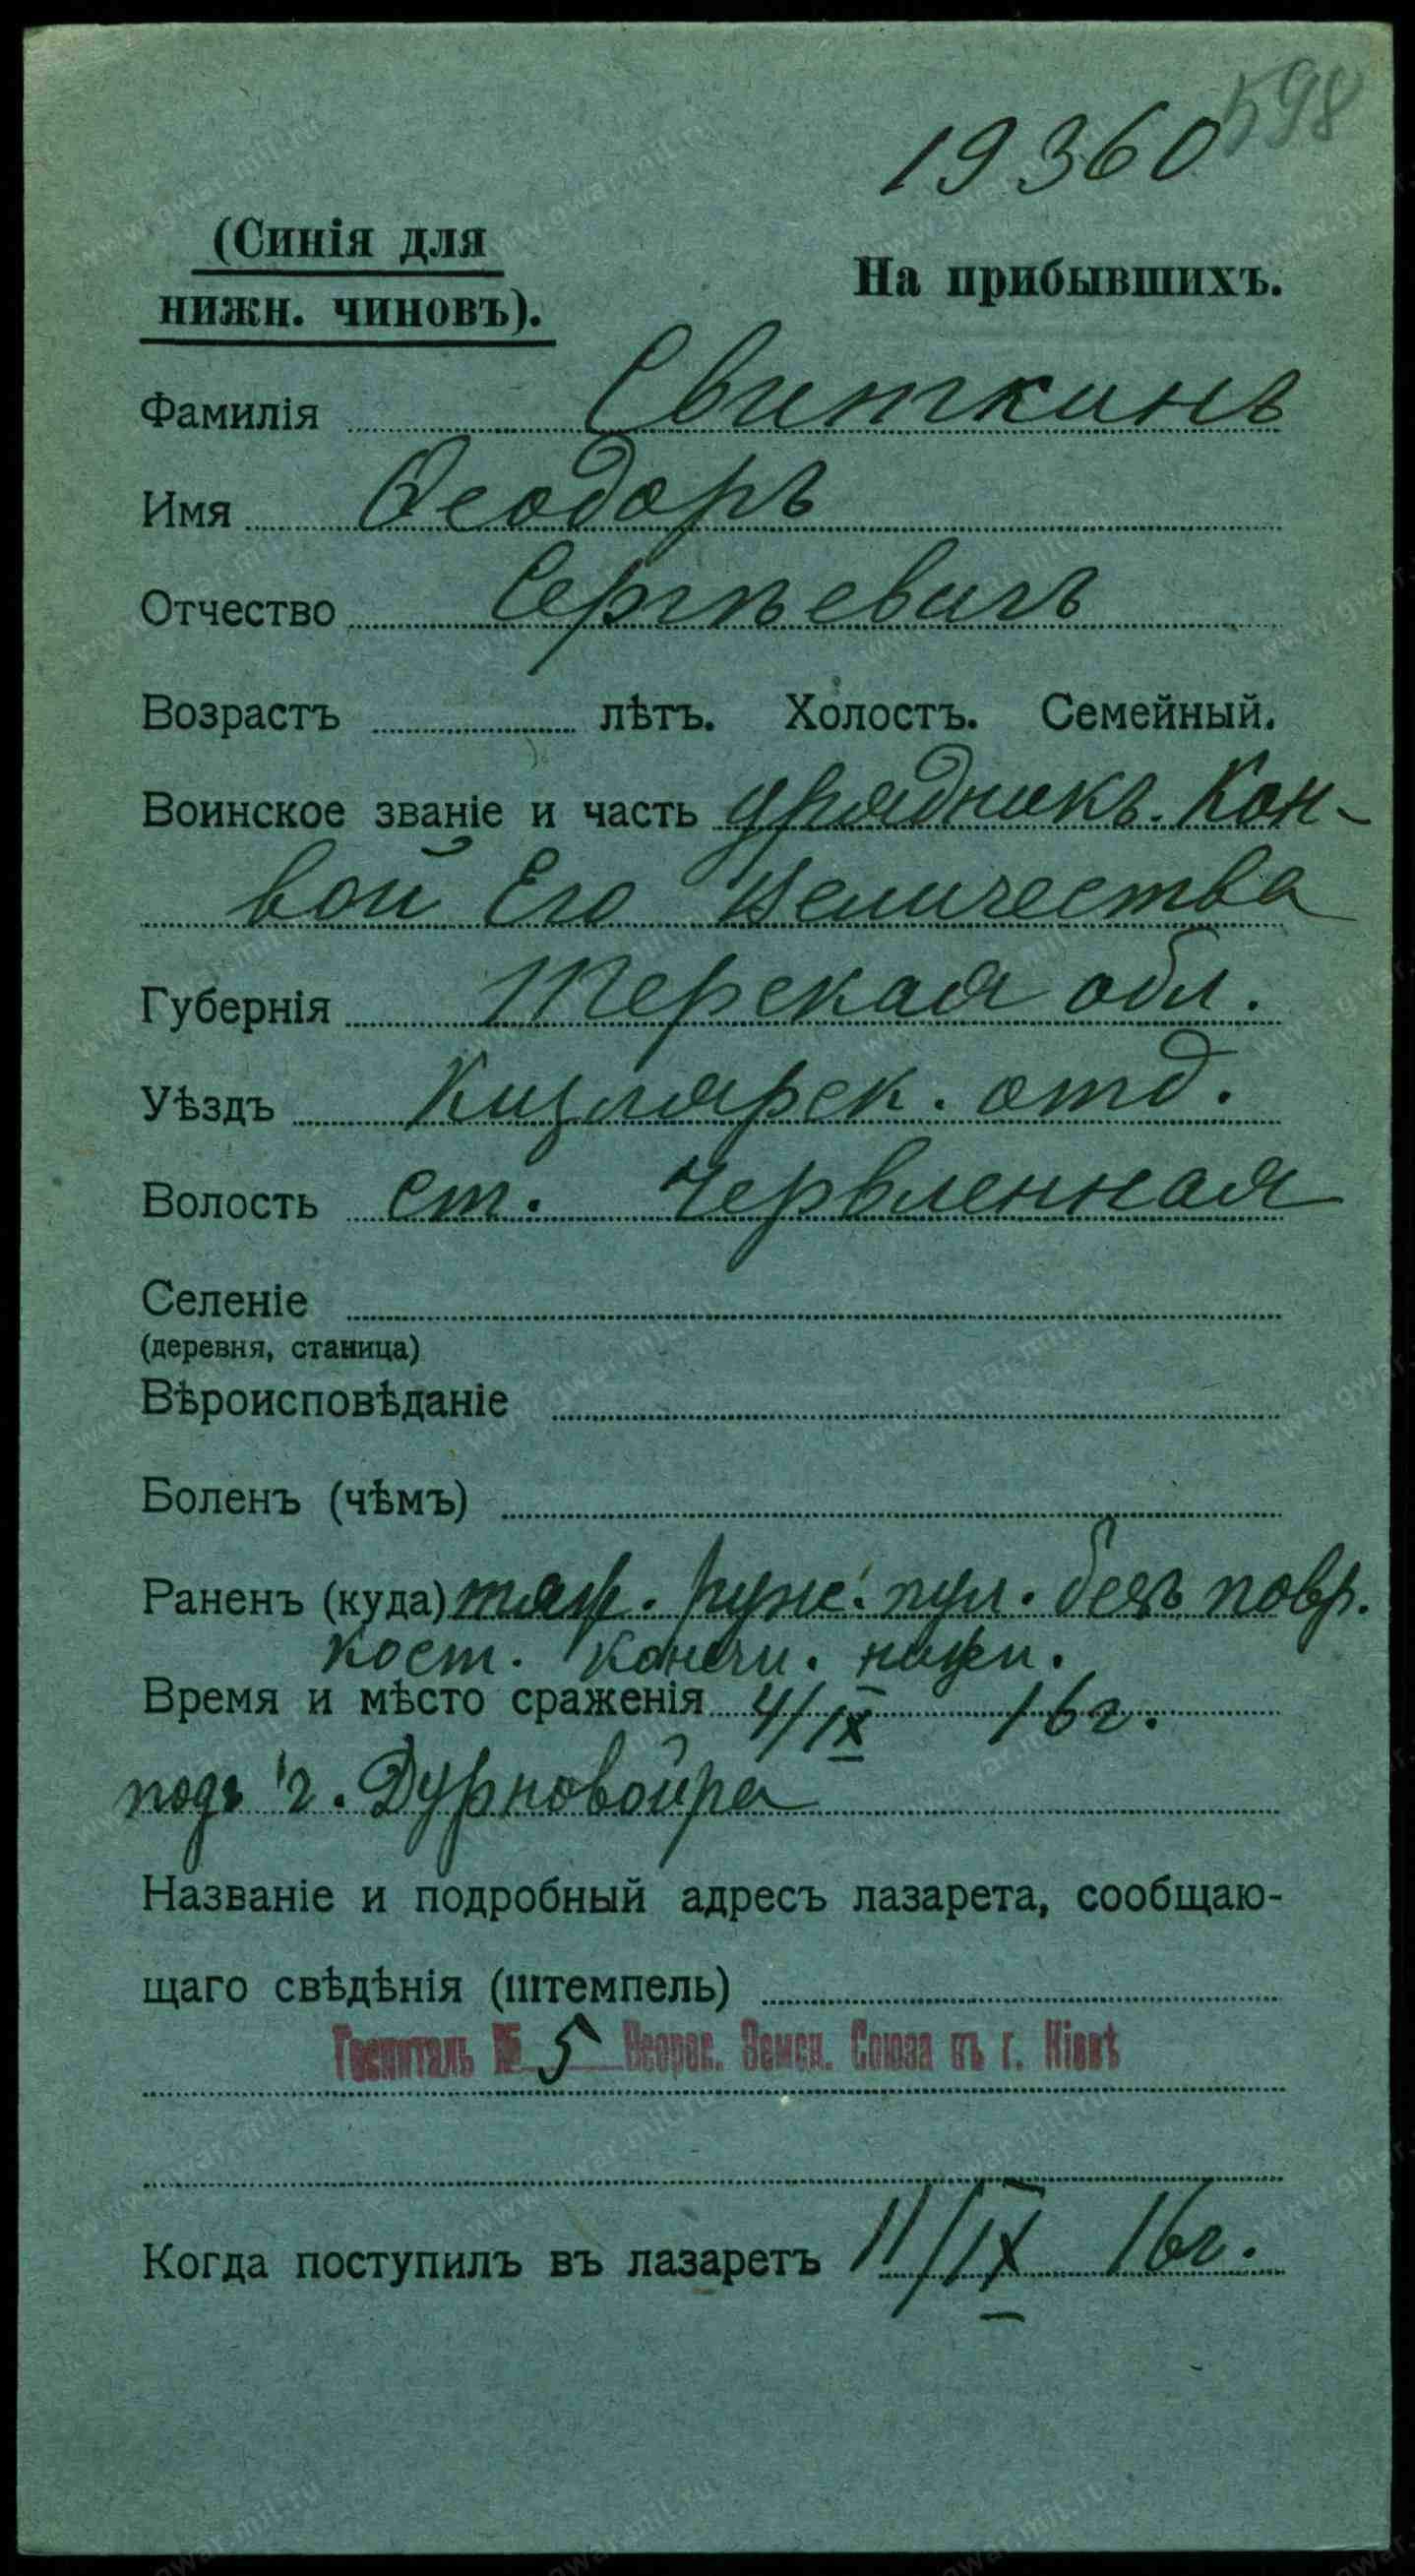 598
19360
(Синія для
нижн. чиновъ).
На прибывшихъ.
Фамилія Свиткинъ
Имя Ѳеодоръ
Отчество Сергѣевичъ
Возрастъ лѣтъ. Холостъ. Семейный.
Воинское званіе и часть урядникъ. Кон-
вой Его Величества
Губернія Терская обл.
Уѣздъ Кизлярск. отд.
Волость ст. Червленная
Селеніе
(деревня, станица)
Вѣроисповѣданіе
Боленъ (чѣмъ)
Раненъ (куда) тяж. руж. пул. безъ повр.
кост. конечн. нижн.
Время и мѣсто сраженія 4/IX 16г.
подъ г. Дурновойра
Названіе и подробный адресъ лазарета, сообщаю-
щаго свѣдѣнія (штемпель)
Госпиталь № 5 Всерос. Земск. Союза въ г. Кіевѣ
Когда поступилъ въ лазаретъ 11/IX 16г.